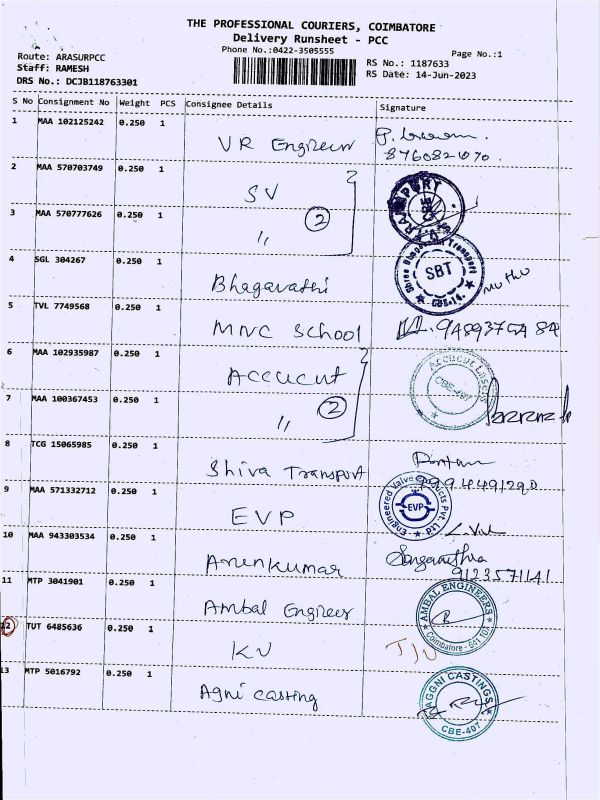 THE PROFESSIONAL COURIERS, COIMBATORE
Delivery Runsheet - PCC
Phone No.:0422-3505555
Page No.:1
Route: ARASURPCC
Staff: RAMESH
DRS No.: DCJB118763301
RS No.: 1187633
RS Date: 14-Jun-2023
S No Consignment No Weight PCS Consignee Details Signature
1 MAA 102125242 0.250 1
VR Engineer
2 MAA 570703749 0.250 1
SV
3 MAA 570777626 0.250 1
〃 2
4 SGL 304267 0.250 1
Bhagavathi
SBT
CBE-14.
muthu
5 TVL 7749568 0.250 1
MNC School
6 MAA 102935987 0.250 1
Accucut
CBE-407
7 MAA 100367453 0.250 1
〃 2
8 TCG 15065985 0.250 1
Shiva Transport
9994491290
9 MAA 571332712 0.250 1
EVP
Engineered Valve Products Pvt. Ltd
EVP
10 MAA 943303534 0.250 1
Arunkumar
9123571141
11 MTP 3041901 0.250 1
Ambal Engineer
AMBAL ENGINEERS
Coimbatore - 641 407
12 TUT 6485636 0.250 1
KV
13 MTP 5016792 0.250 1
Agni casting
AGGNI CASTINGS
CBE-407